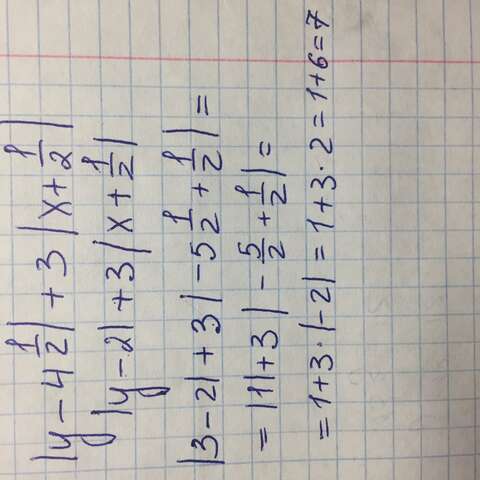 |y - 4 1/2| + 3 |x + 1/2|
|y - 2| + 3 |x + 1/2|
|3 - 2| + 3 | - 5 1/2 + 1/2 | =
= |1| + 3 | - 5/2 + 1/2 | =
= 1 + 3 · |-2| = 1 + 3 · 2 = 1 + 6 = 7